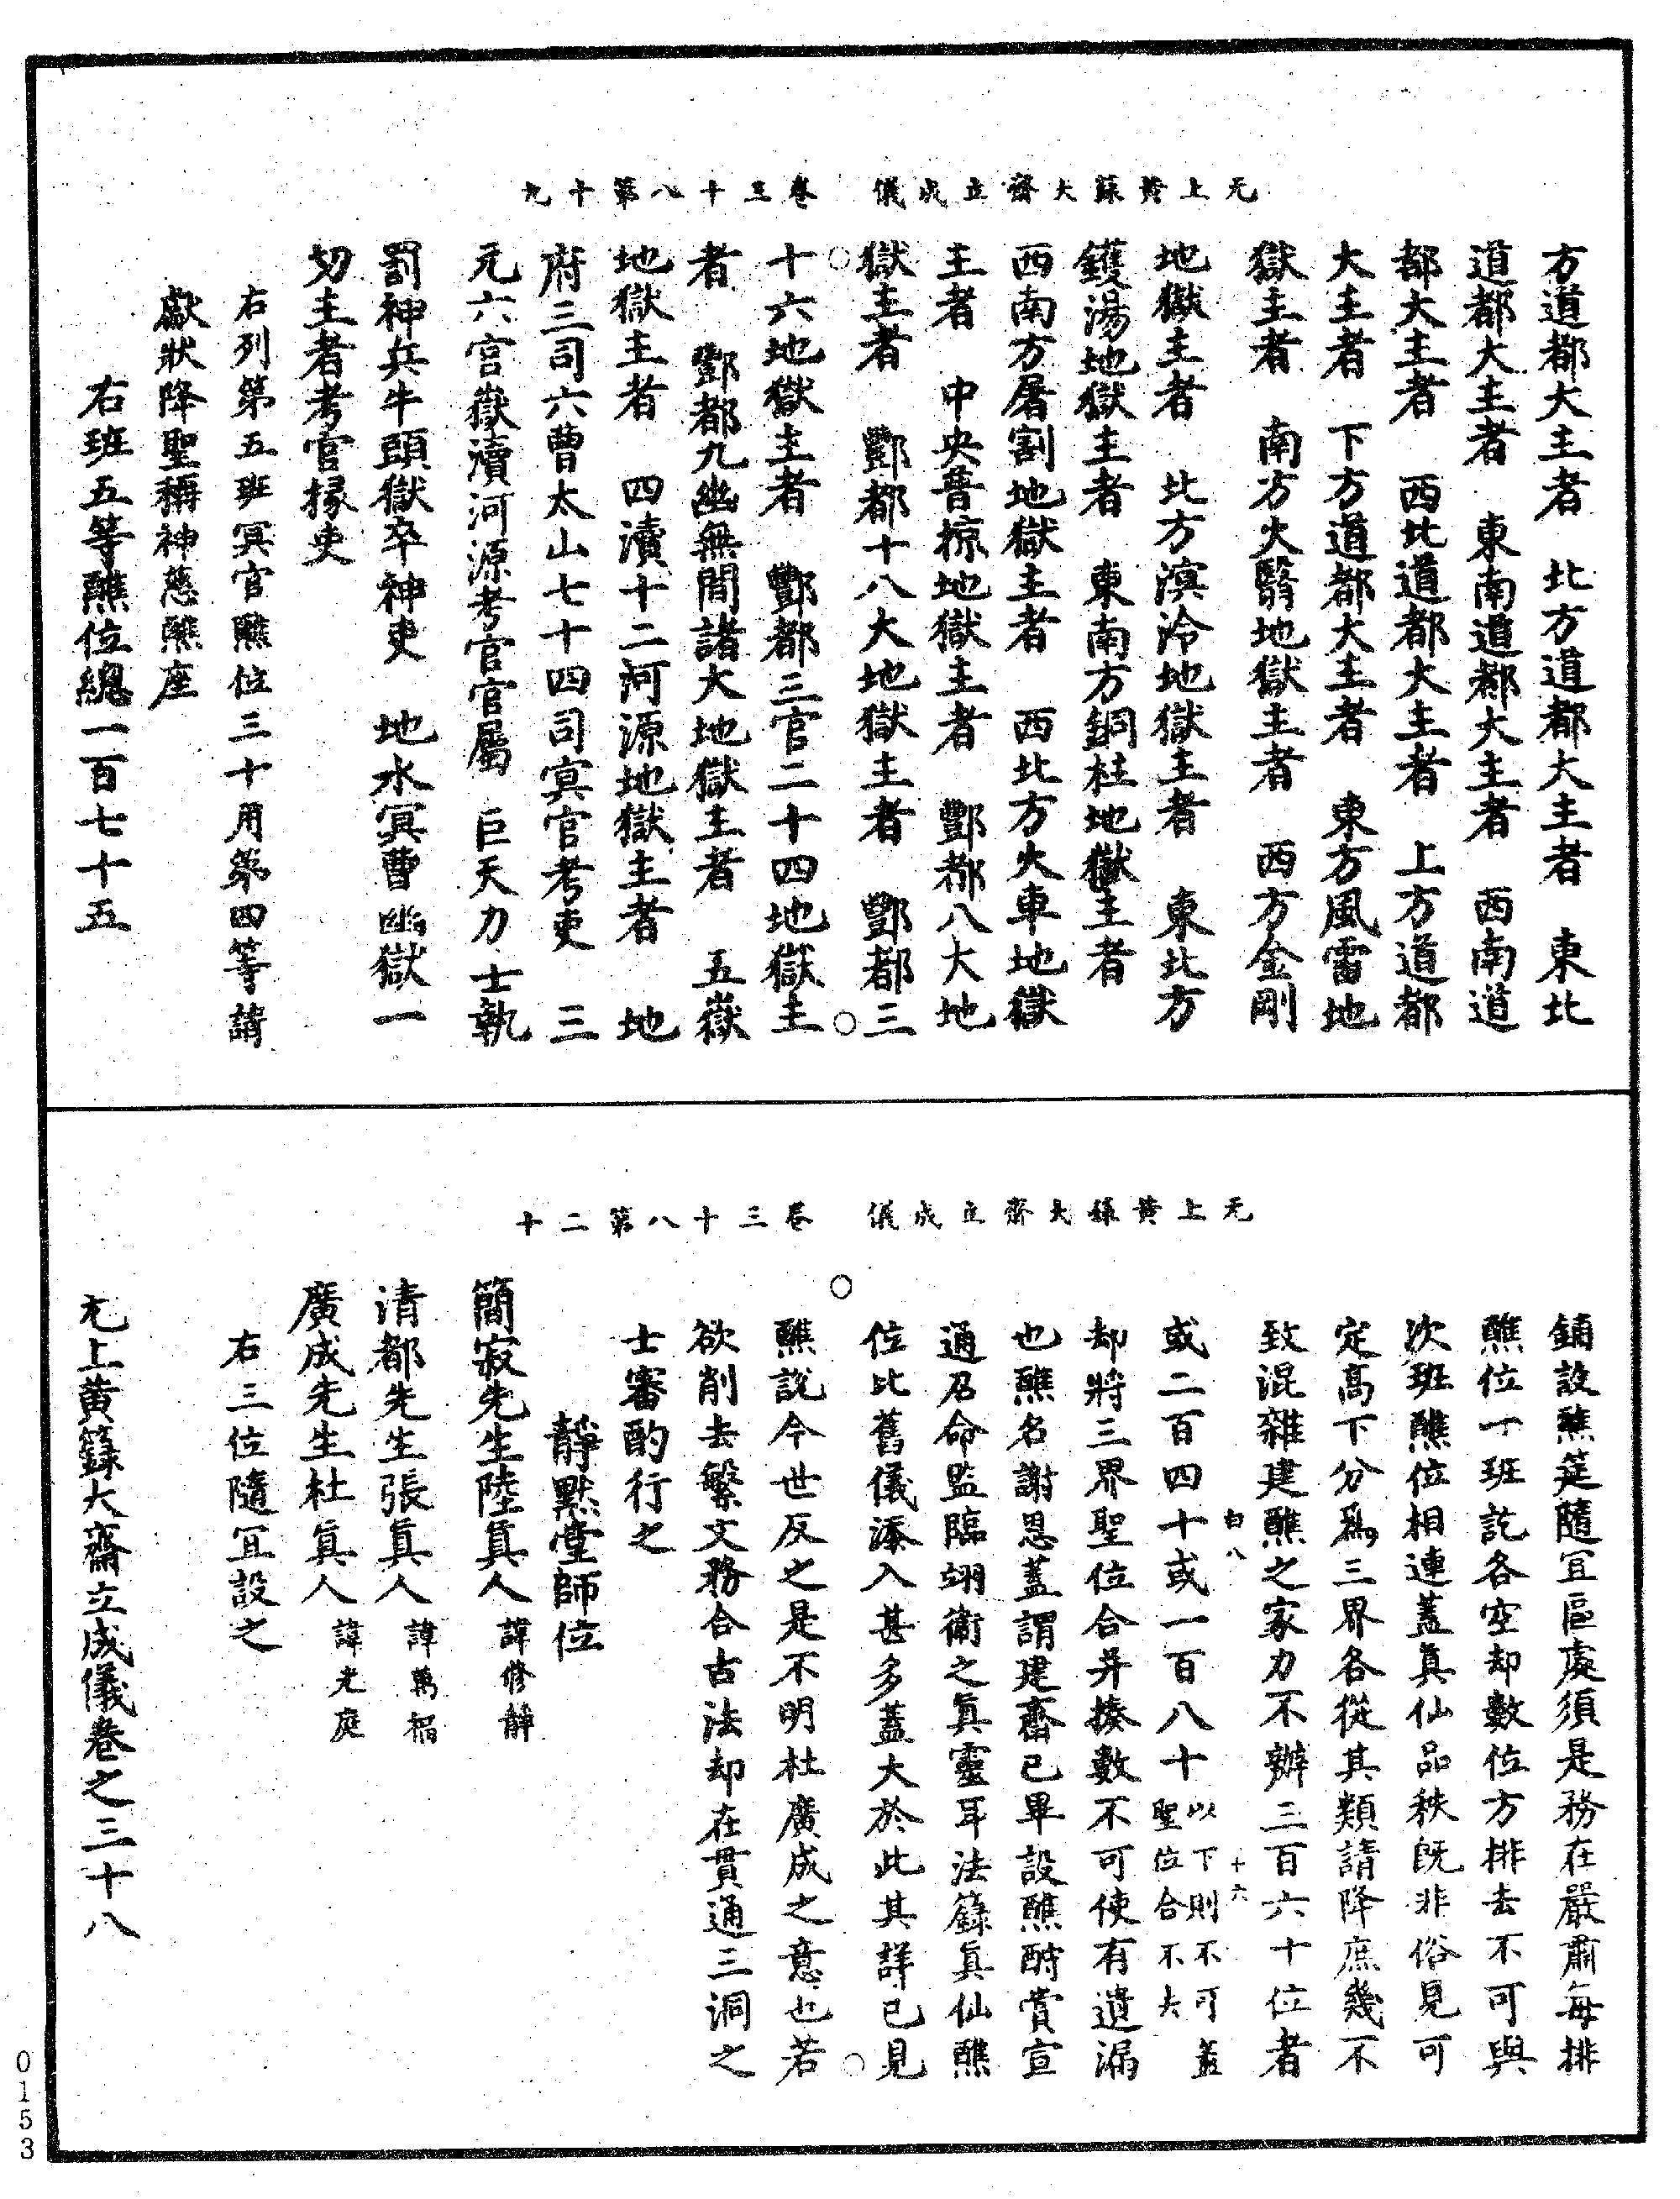 无上黃籙大齋立成儀　卷三十八第十九
方道都大主者　北方道都大主者　東北
道都大主者　東南道都大主者　西南道
都大主者　西北道都大主者　上方道都
大主者　下方道都大主者　東方風雷地
獄主者　南方火翳地獄主者　西方金剛
地獄主者　北方溟泠地獄主者　東北方
鑊湯地獄主者　東南方銅柱地獄主者
西南方屠割地獄主者　西北方火車地獄
主者　中央普掠地獄主者　酆都八大地
獄主者　酆都十八大地獄主者　酆都三
十六地獄主者　酆都三官二十四地獄主
者　酆都九幽無間諸大地獄主者　五嶽
地獄主者　四瀆十二河源地獄主者　地
府三司六曹太山七十四司冥官考吏　三
元六宮嶽瀆河源考官官屬　巨天力士執
罰神兵牛頭獄卒神吏　地水冥曹幽獄一
切主者考官掾吏
右列第五班冥官醮位三十用第四等請
獻狀降聖稱神慈醮座
右班五等醮位總一百七十五
无上黃籙大齋立成儀　卷三十八第二十
鋪設醮筵隨宜區處須是務在嚴肅每排
醮位一班訖各空却數位方排去不可與
次班醮位相連蓋眞仙品秩既非俗見可
定高下分爲三界各從其類請降庶幾不
致混雜建醮之家力不辦三百六十位者
白八　十六
或二百四十或一百八十以下則不可蓋聖位合不大
却將三界聖位合并揍數不可使有遺漏
也醮名謝恩蓋謂建齋已畢設醮酧賞宣
通召命監臨翊衛之眞靈耳法籙眞仙醮
位比舊儀添入甚多蓋大於此其詳已見
醮說今世反之是不明杜廣成之意也若
欲削去繁文務合古法却在貫通三洞之
士審酌行之
靜默堂師位
簡寂先生陸眞人諱修靜
清都先生張眞人諱萬福
廣成先生杜眞人諱光庭
右三位隨宜設之
无上黃籙大齋立成儀卷之三十八
0153